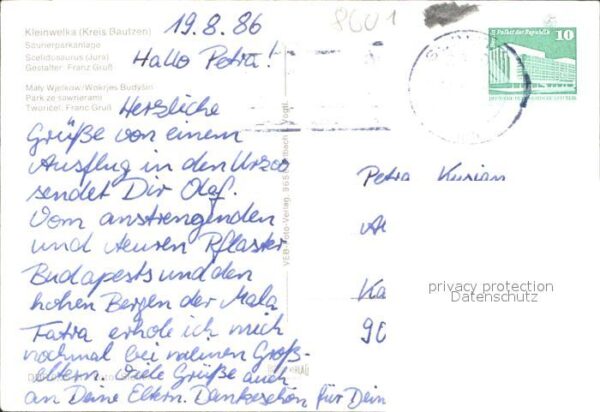 Kleinwelka (Kreis Bautzen)
Saurierparkanlage
Scelidosaurus (Jura)
Gestalter: Franz Gruß
Mały Wjelkow/Wokrjes Budyšin
Park ze sawrierami
Tworićel: Franc Gruß
19.8.86
Hallo Petra!
Herzliche
Grüße von einem
Ausflug in den Urzoo
sendet Dir Olaf.
Vom anstrengenden
und teuren Pflaster
Budapests und den
hohen Bergen der Mala
Fatra erhole ich mich
nochmal bei meinen Groß-
eltern. Viele Grüße auch
an Deine Eltern. Dankeschön für Dein
VEB Foto-Verlag
8601
Palast der Republik
10
Petra
Ka
90
privacy protection
Datenschutz